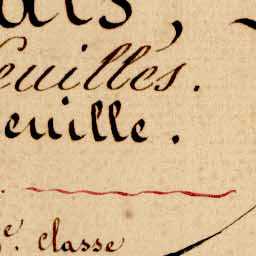 euillés.
euille.
e. classe